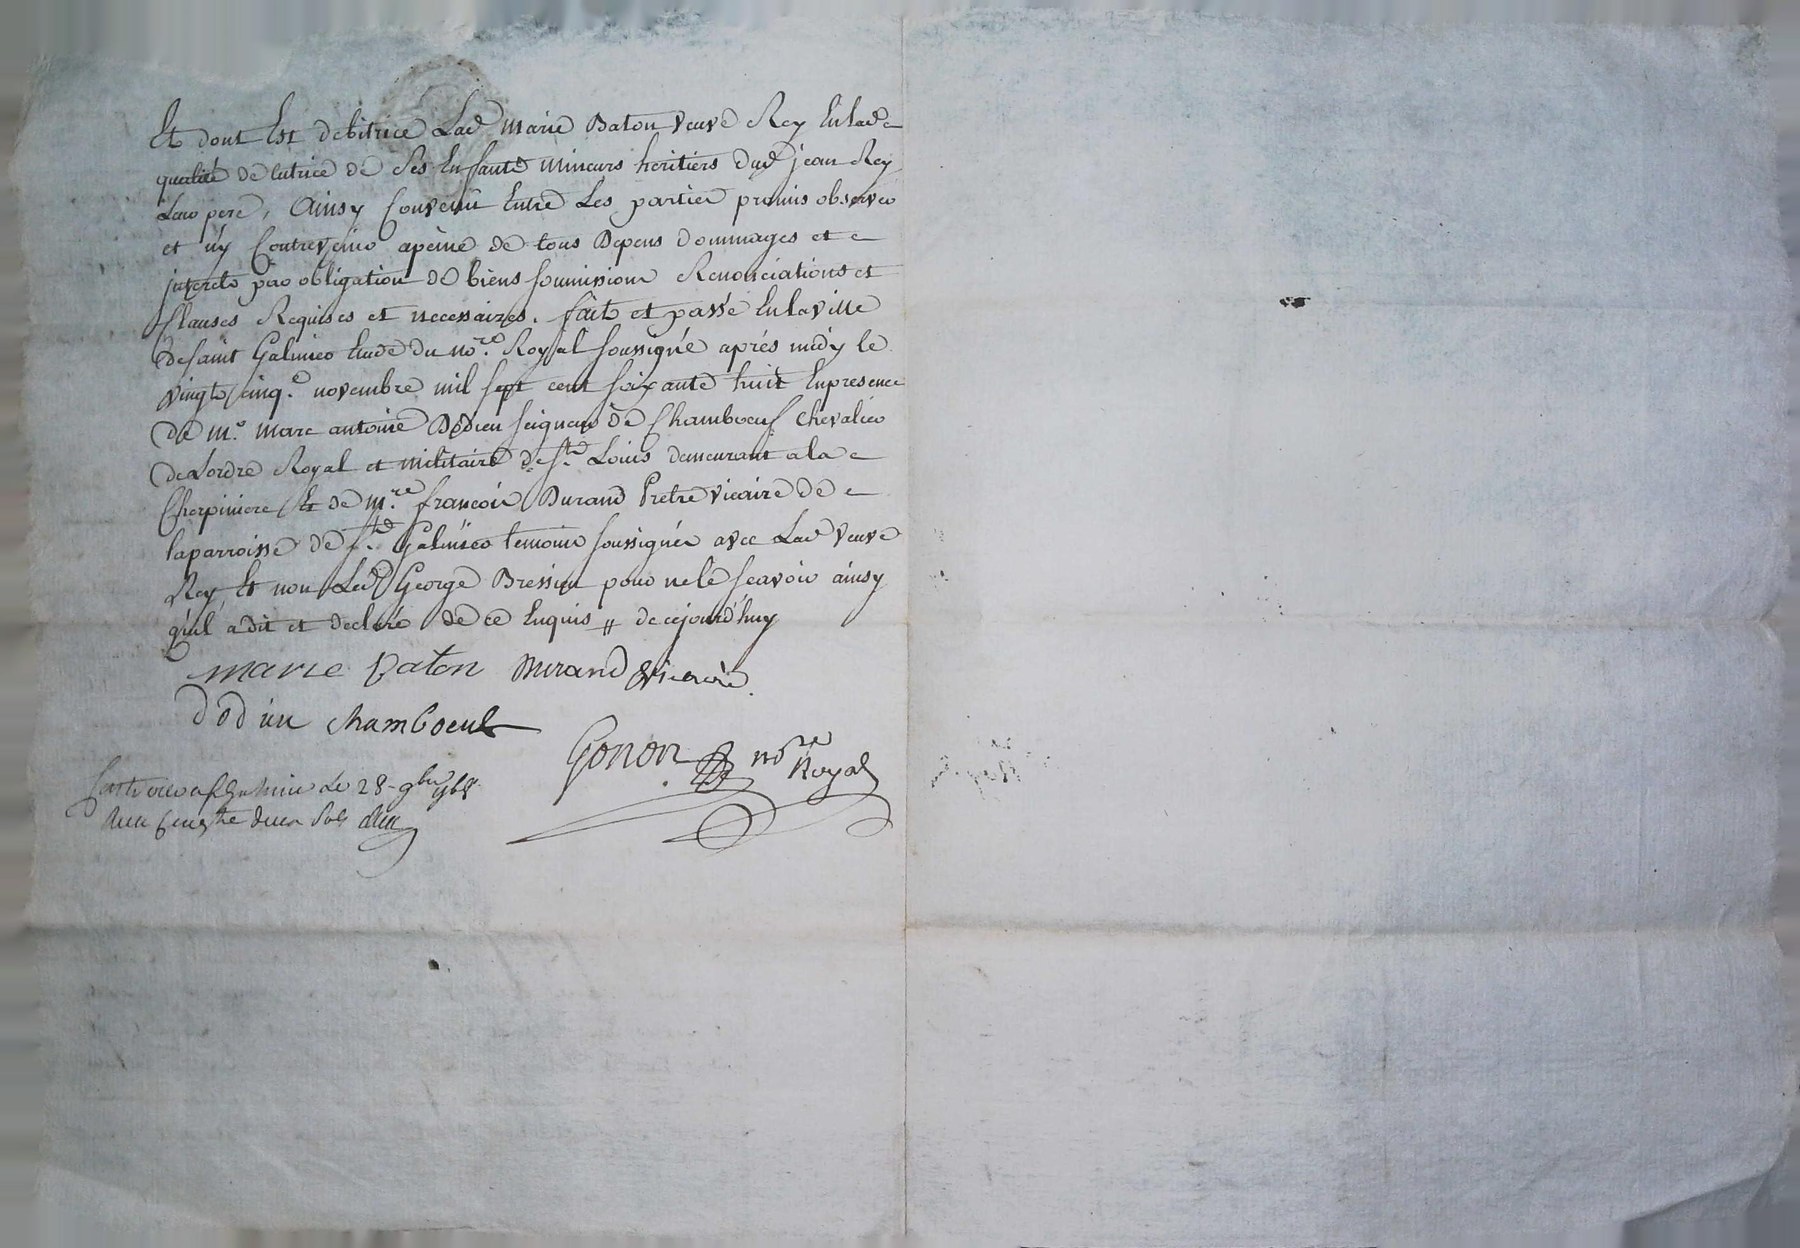 Et dont Est debitrice Lad.e Marie Baton veuve Rey En lad.e
qualité de tutrice de Ses Enfants Mineurs heritiers dud. jean Rey
Leur pere, Ainsy Convenu Entre Les parties promis observer
et n'y Contrevenir apeine de tous Depens dommages et
interets par obligation de biens Soumissions Renonciations et
Clauses Requises et necessaires. fait et passé En la ville
de saint Galmier Etude du no.re Royal soussigné aprés midy le
vingt cinq.e novembre mil sept cent soixante huit En presence
de M.e Marc antoine Dodieu seigneur de Chamboeuf Chevalier
de Lordre Royal et militaire de S.t Louis demeurant a la
Cherpiniere Et de M.re françois Durand Pretre vicaire de
la parroisse de S.t Galmier temoins soussignés avec Lad.e Veuve
Rey Et non Led. George Bression pour ne le scavoir ainsy
qu'il a dit et declaré de ce Enquis // de cejourd'huy
marie Baton Durand vicaire
dodieu chamboeuf
Gonon no.re Royal
le 28 9bre 1768